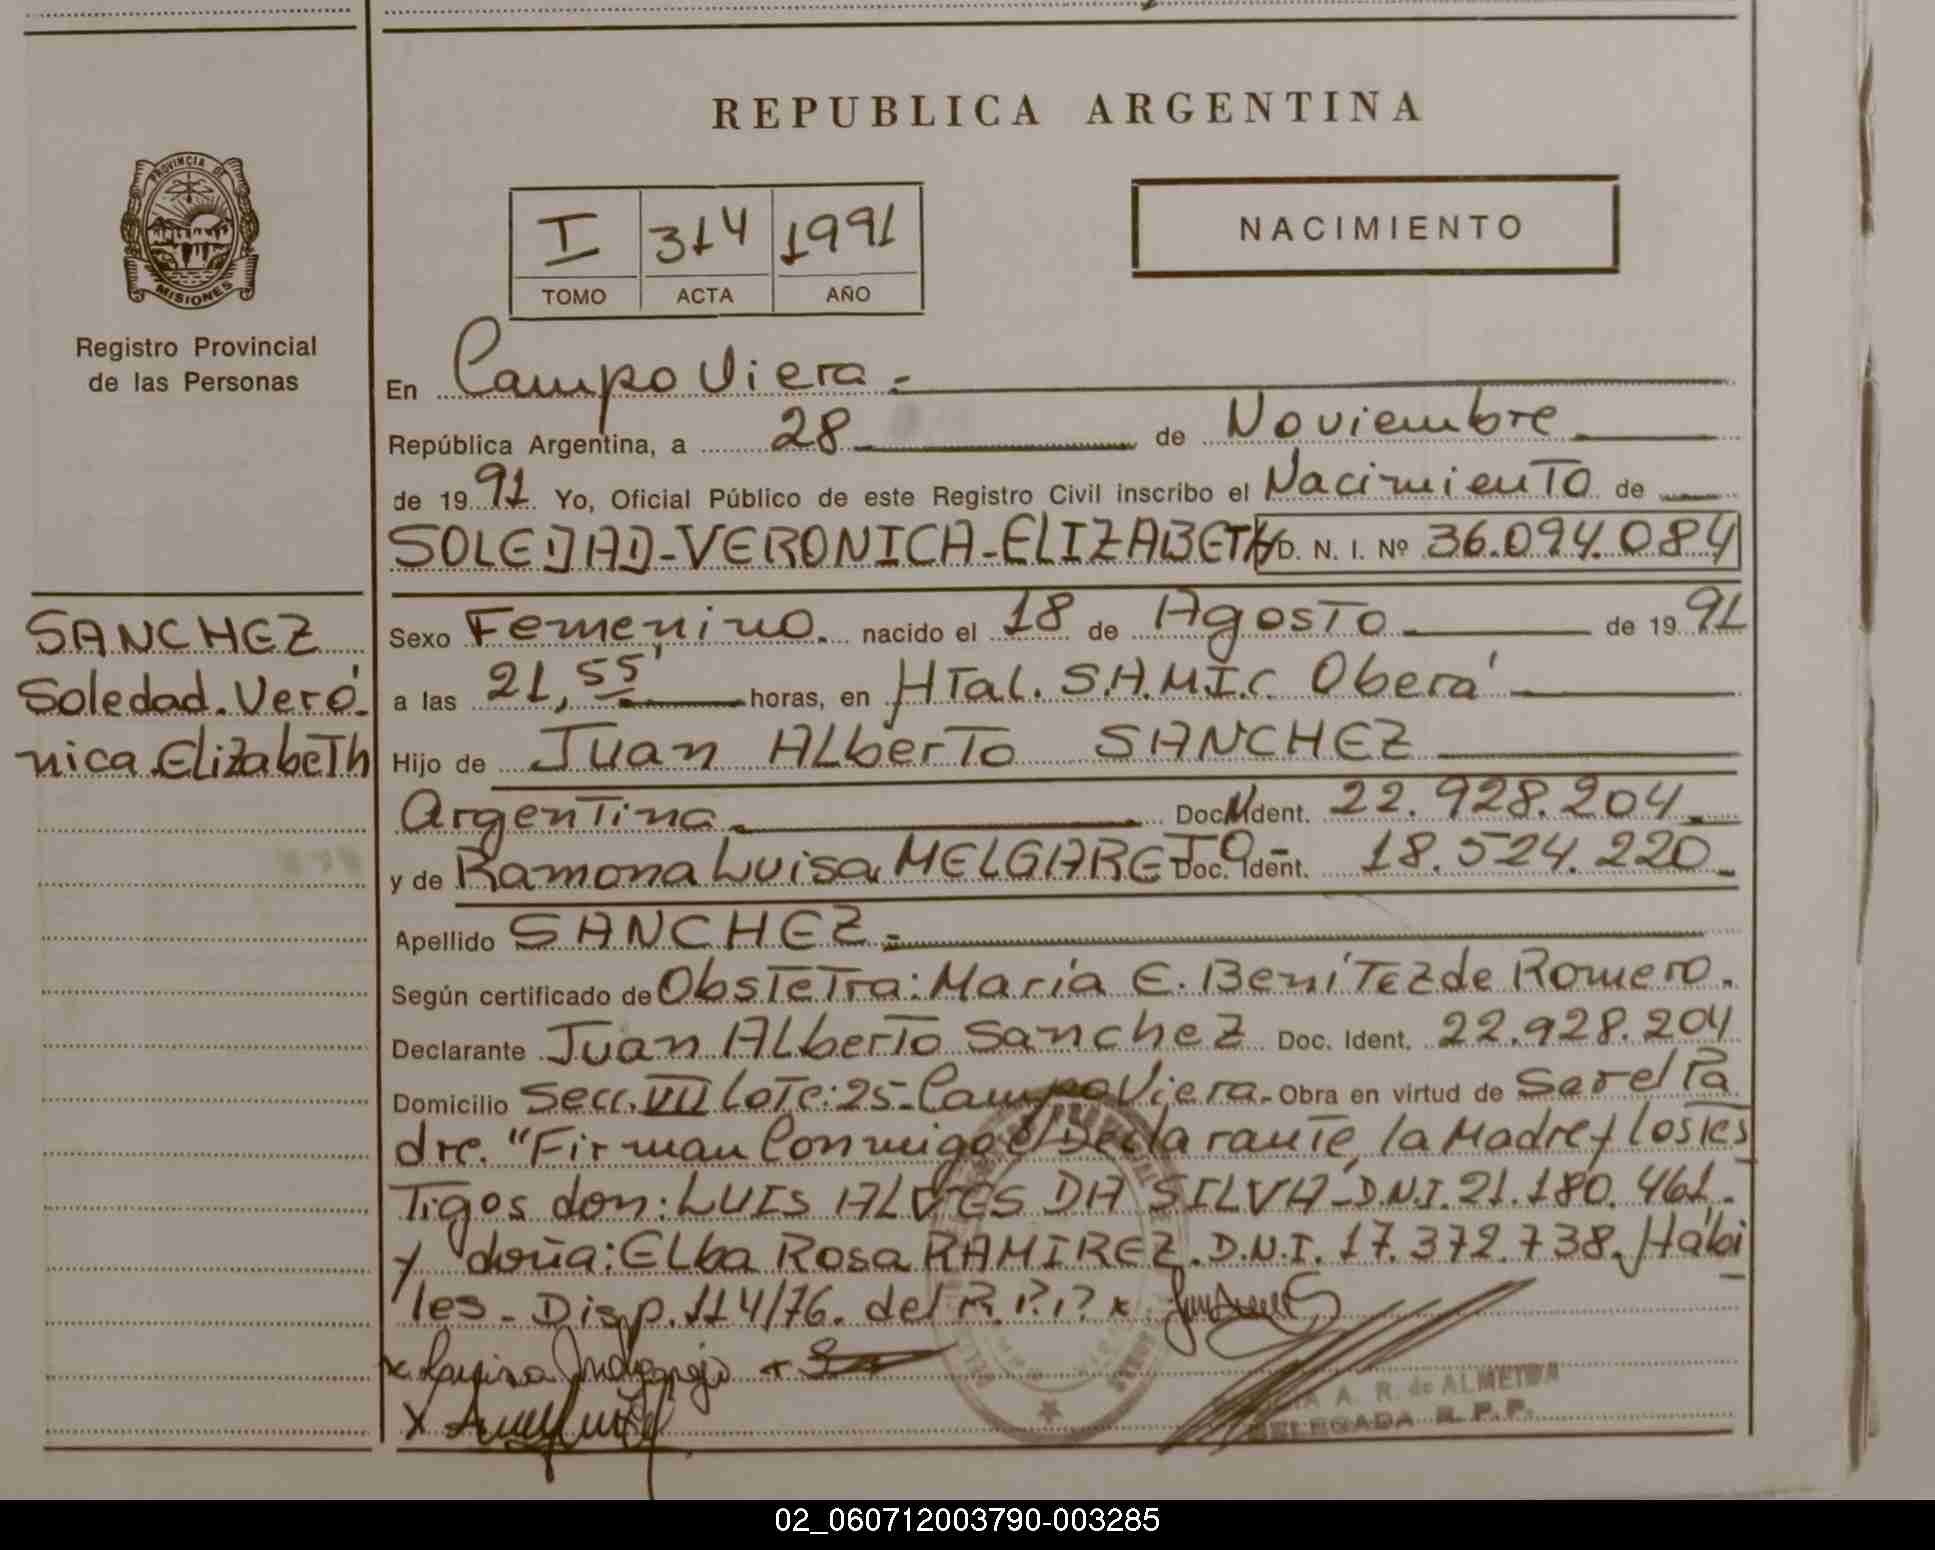 REPUBLICA ARGENTINA
PROVINCIA DE
MISIONES
Registro Provincial
de las Personas
I 314 1991
TOMO ACTA AÑO
NACIMIENTO
En Campo Viera.-
República Argentina, a 28 de Noviembre
de 1991 Yo, Oficial Público de este Registro Civil inscribo el Nacimiento de
SOLEDAD-VERONICA-ELIZABETH D. N. I. Nº 36.094.084
SANCHEZ
Soledad.Veró-
nica.Elizabeth
Sexo Femenino. nacido el 18 de Agosto de 1991
a las 21,55' horas, en HTal. S.A.M.I.C. Oberá
Hijo de Juan ALberto SANCHEZ
Argentina. Doc. Ident. 22.928.204.
y de Ramona Luisa MELGAREJO- Doc. Ident. 18.524.220.
Apellido SANCHEZ.-
Según certificado de Obstetra: María E. Benítez de Romero.
Declarante Juan ALberto Sanchez Doc. Ident. 22.928.204
Domicilio Secc. VII Lote: 25-Campo Viera.- Obra en virtud de Ser el Pa
dre. "Firman Conmigo el Declarante, la Madre y los tes
Tigos don: LUIS ALVES DA SILVA-D.N.I. 21.180.461.
y doña: ELba Rosa RAMIREZ. D.N.I. 17.372.738. Hábi
les - Disp. 114/76. del R.P.P. x
x
x
A. R. de ALMEIDA
DELEGADA R.P.P.
02_060712003790-003285